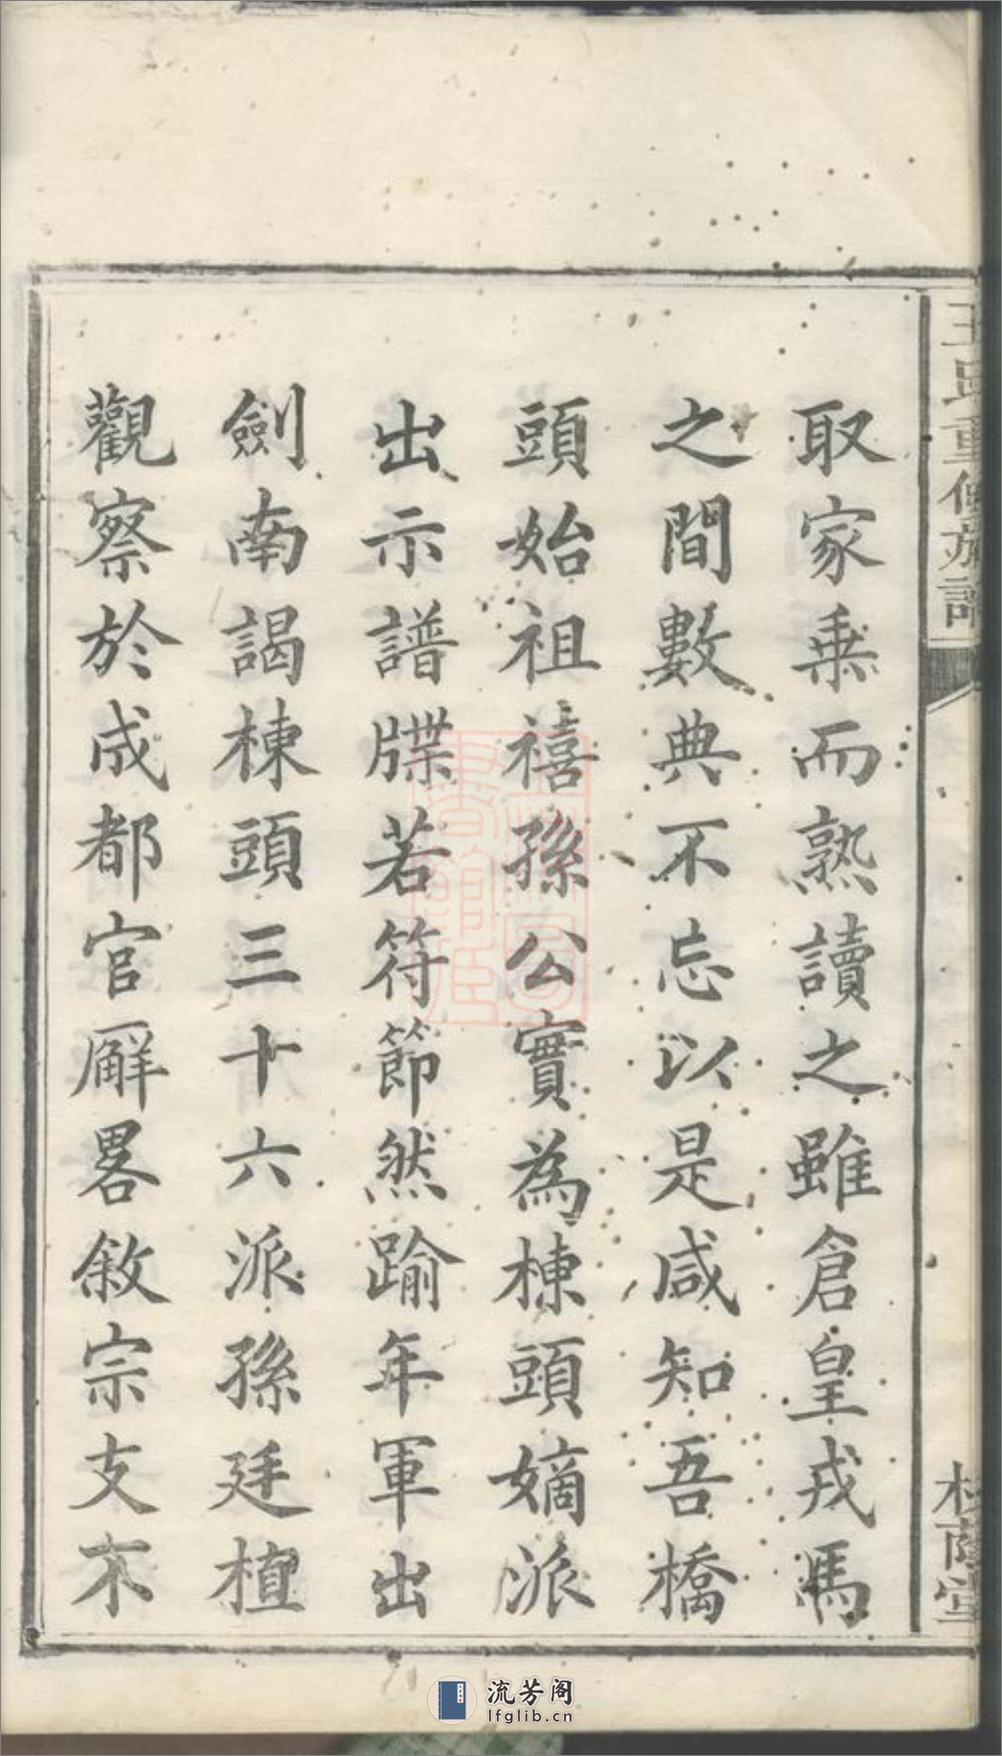 取家乗而熟讀之雖倉皇戎馬
之間數典不忘以是咸知吾橋
頭始祖禧孫公實為棟頭嫡派
出示譜牒若符節然踰年軍出
劍南謁棟頭三十六派孫廷植
觀察於成都官廨畧敘宗支木
重修族譜
蔭堂
流芳阁
lfglib.cn